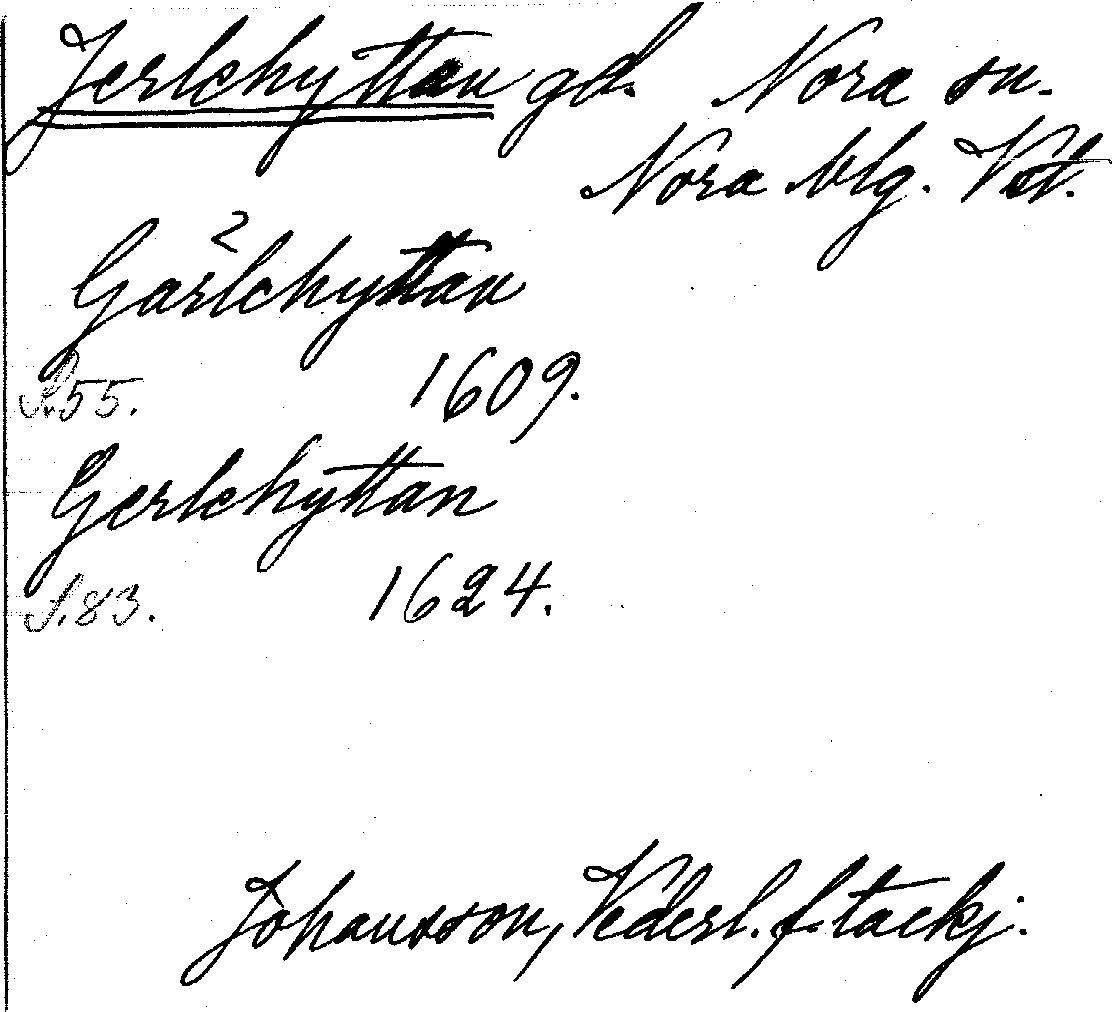 Jerlehyttan gd. Nora sn.
Nora blg. Vstl.
2
Garlehyttan
S.55. 1609.
Gerlehyttan
S.83. 1624.
Johansson, Vederl. f. tackj.